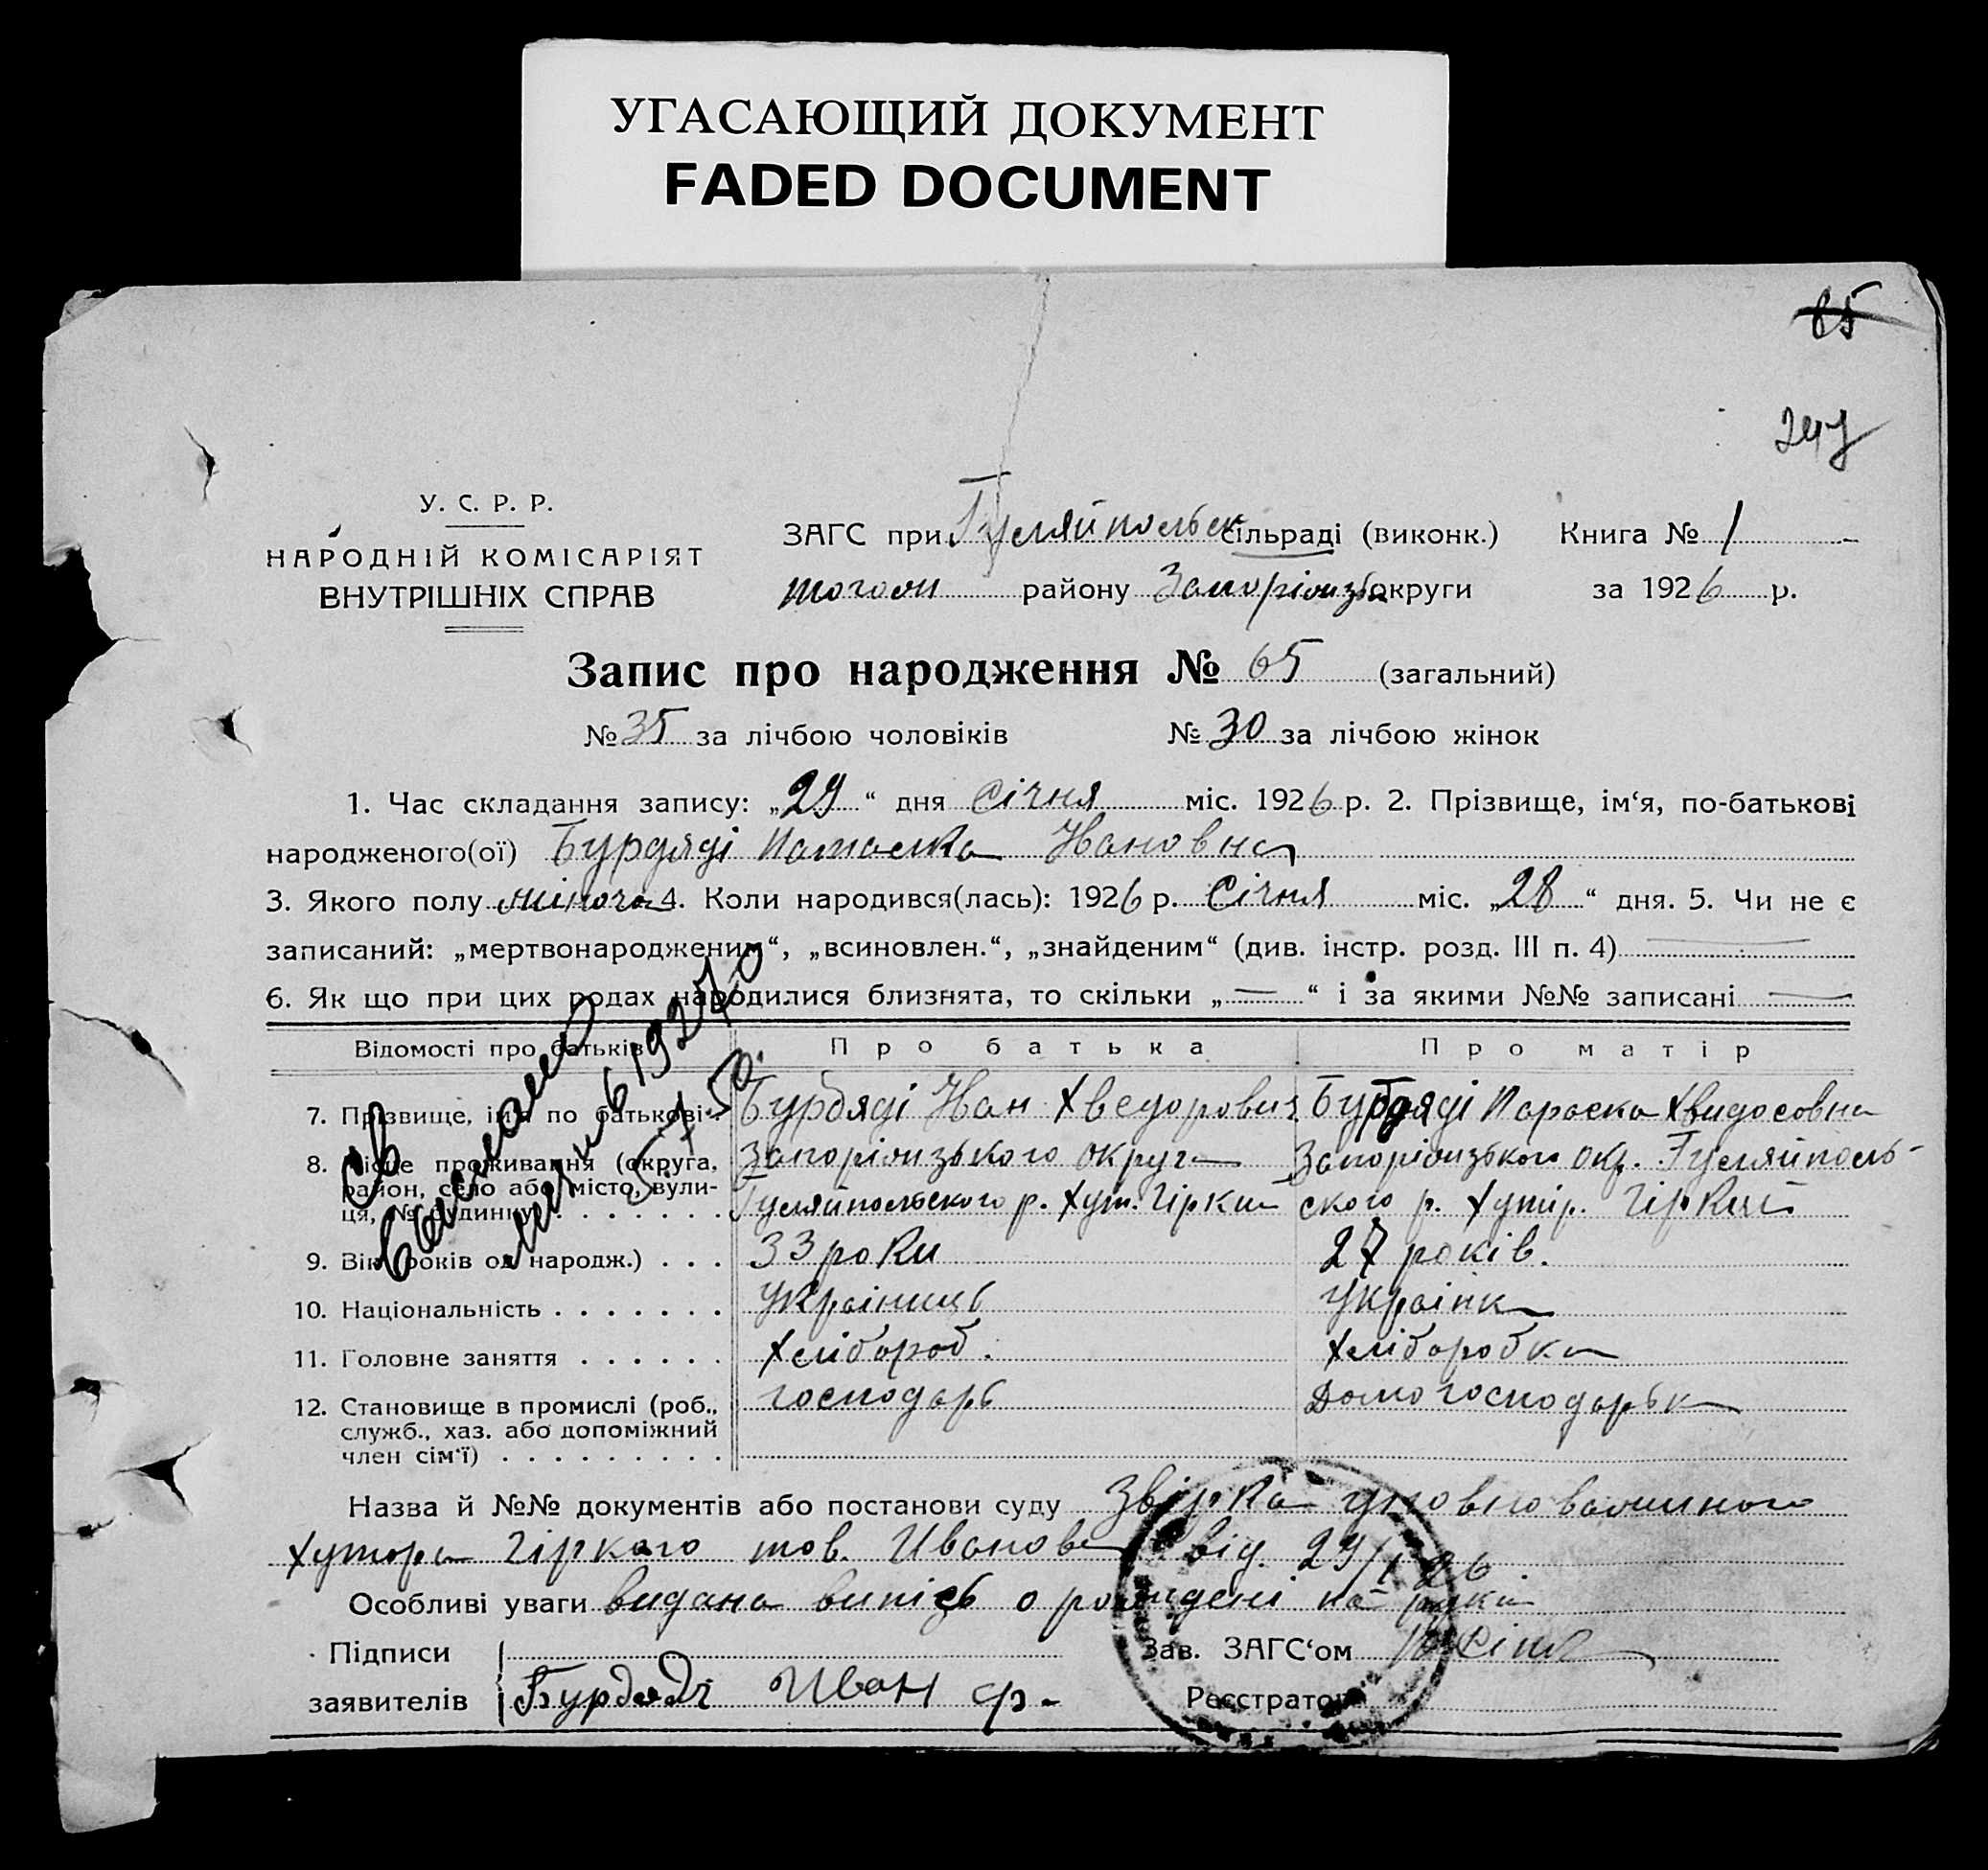 УГАСАЮЩИЙ ДОКУМЕНТ
FADED DOCUMENT
85
247
У. С. Р. Р.
НАРОДНІЙ КОМІСАРІЯТ
ВНУТРІШНІХ СПРАВ
ЗАГС при Гуляйпольск сільраді (виконк.) Книга № 1
того ж району Запоріжзьк округи за 1926 р.
Запис про народження № 65 (загальний)
№ 35 за лічбою чоловіків № 30 за лічбою жінок
1. Час складання запису: „29“ дня Січня міс. 1926 р. 2. Прізвище, ім‘я, по-батькові
народженого(ої) Бурдяді Наталка Ивановна
3. Якого полу жіноча 4. Коли народився(лась): 1926 р. Січня міс. „28“ дня. 5. Чи не є
записаний: „мертвонародженим“, „всиновлен.“, „знайденим“ (див. інстр. розд. III п. 4)
6. Як що при цих родах народилися близнята, то скільки „—“ і за якими №№ записані —
Відомості про батьків Про батька Про матір
7. Прізвище, ім‘я по батькові Бурдяді Иван Хведорович Бурдяді Параска Хвидосовна
8. Місце проживання (округа, Запоріжзького округа Запоріжзького окр. Гуляйполь-
район, село або місто, вули- Гуляйпольского р. Хут. Гіркий ского р. Хутір. Гіркий
ця, № будинку)
9. Вік (років од народж.) 33 роки 27 років.
10. Національність Україниць Українка
11. Головне заняття Хлібороб. Хліборобка
12. Становище в промислі (роб., господарь Домогосподарька
служб., хаз. або допоміжний
член сім‘ї)
Назва й №№ документів або постанови суду Звірка уповноваженого
Хутора Гіркого тов. Иванова від. 29/I 26
Особливі уваги видана випісь о рождені на руки
Підписи
заявителів Бурдяді Иван Ф.
Зав. ЗАГС‘ом
Реєстратор